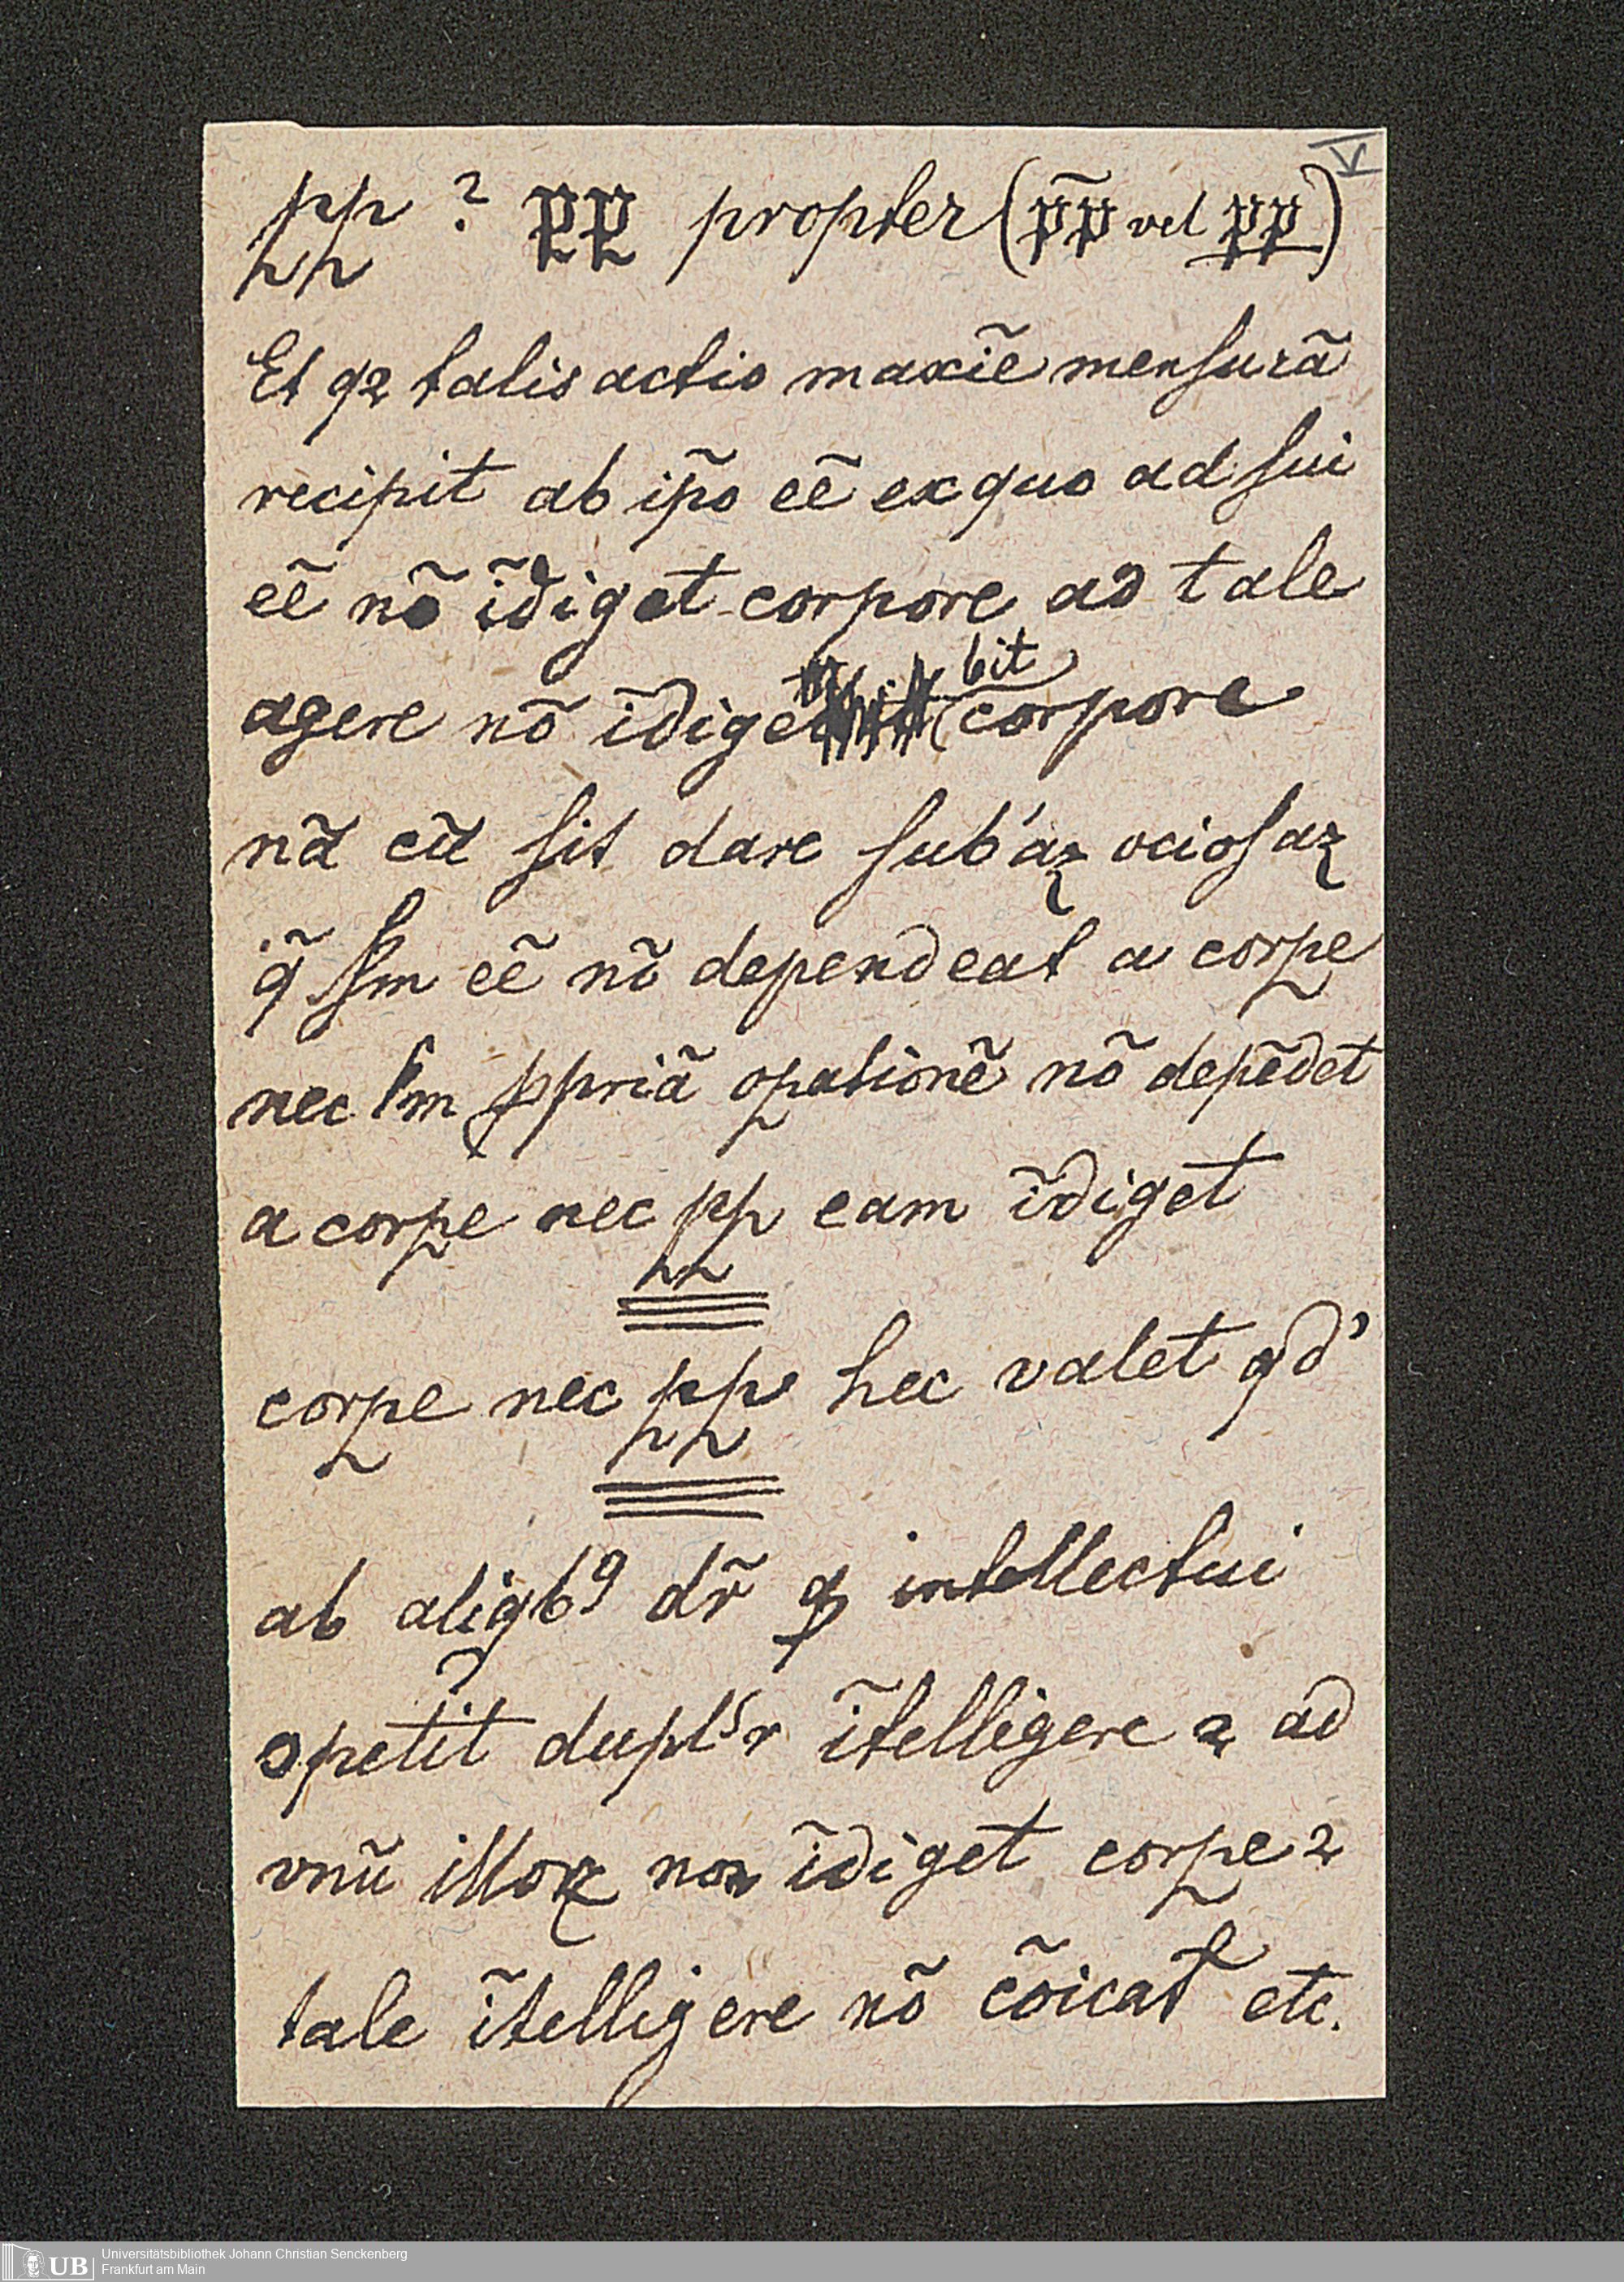 V
pp ? pp propter (p̃p vel pp)
Et qꝛ talis actio maxĩe mensurã
recipit ab ip̃o eẽ ex quo ad sui
eẽ nõ ĩdiget corpore ad tale
agere nõ ĩdige bit corpore
nã cũ sit dare sub'aꝫ ociosaꝫ
q̃ sm eẽ nõ dependeat a corꝑe
nec sm ꝓpriã oꝑationẽ nõ depẽdet
a corꝑe nec pp eam ĩdiget
corꝑe nec pp hec valet qd'
ab aliqbꝰ dr̃ ꝙ intellectui
ↄpetit duplʳr ĩtelligere ⁊ ad
vnũ illoꝝ non ĩdiget corꝑe ⁊
tale ĩtelligere nõ cõicat etc.
UB Universitätsbibliothek Johann Christian Senckenberg
Frankfurt am Main